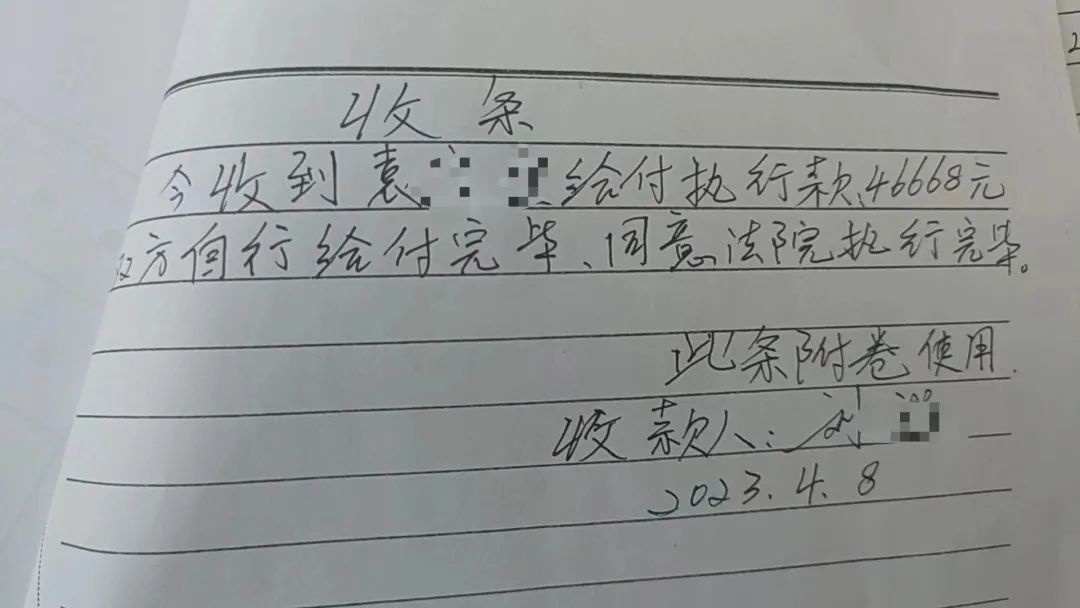 收条
今收到袁 给付执行款46668元
双方自行给付完毕、同意法院执行完毕。
此条附卷使用.
收款人:刘
2023.4.8
2